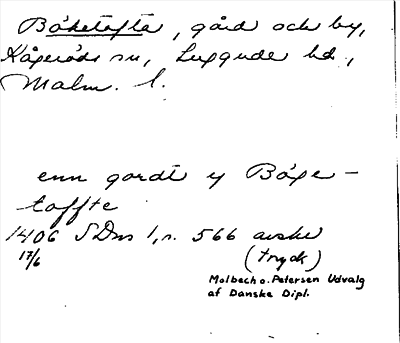 Böketofta, gård och by,
Kågeröds sn, Luggude hd.,
Malm. l.
enn gordt y Böge-
toffte
1406 SDns 1, n. 566 avskr
17/6 (tryck)
Molbech o. Petersen Udvalg
af Danske Dipl.